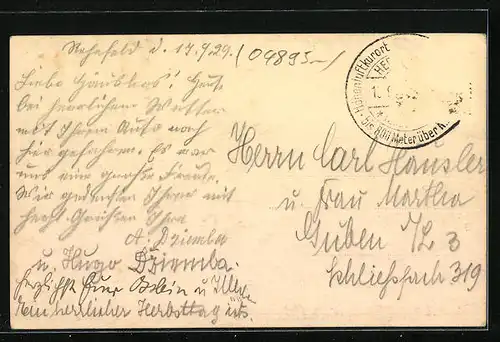 Rehefeld d. 17.9.29. (04895-)
Liebe Häuslers! Heut
bei herrlichem Wetter
mit Ihrem Auto nach
hier gefahren. Es war
uns eine große Freude.
Wir gedenken Ihrer mit
herzl. Grüßen Ihre
A. Dziemba
u. Hugo Dziemba.
Herzlichst Euer u.
Ein herrlicher Herbsttag ists.
Höhenluftkurort
bis 800 Meter über
Herrn Carl Häusler
u. Frau Martha
Guben N/L 3
Schliessfach 319